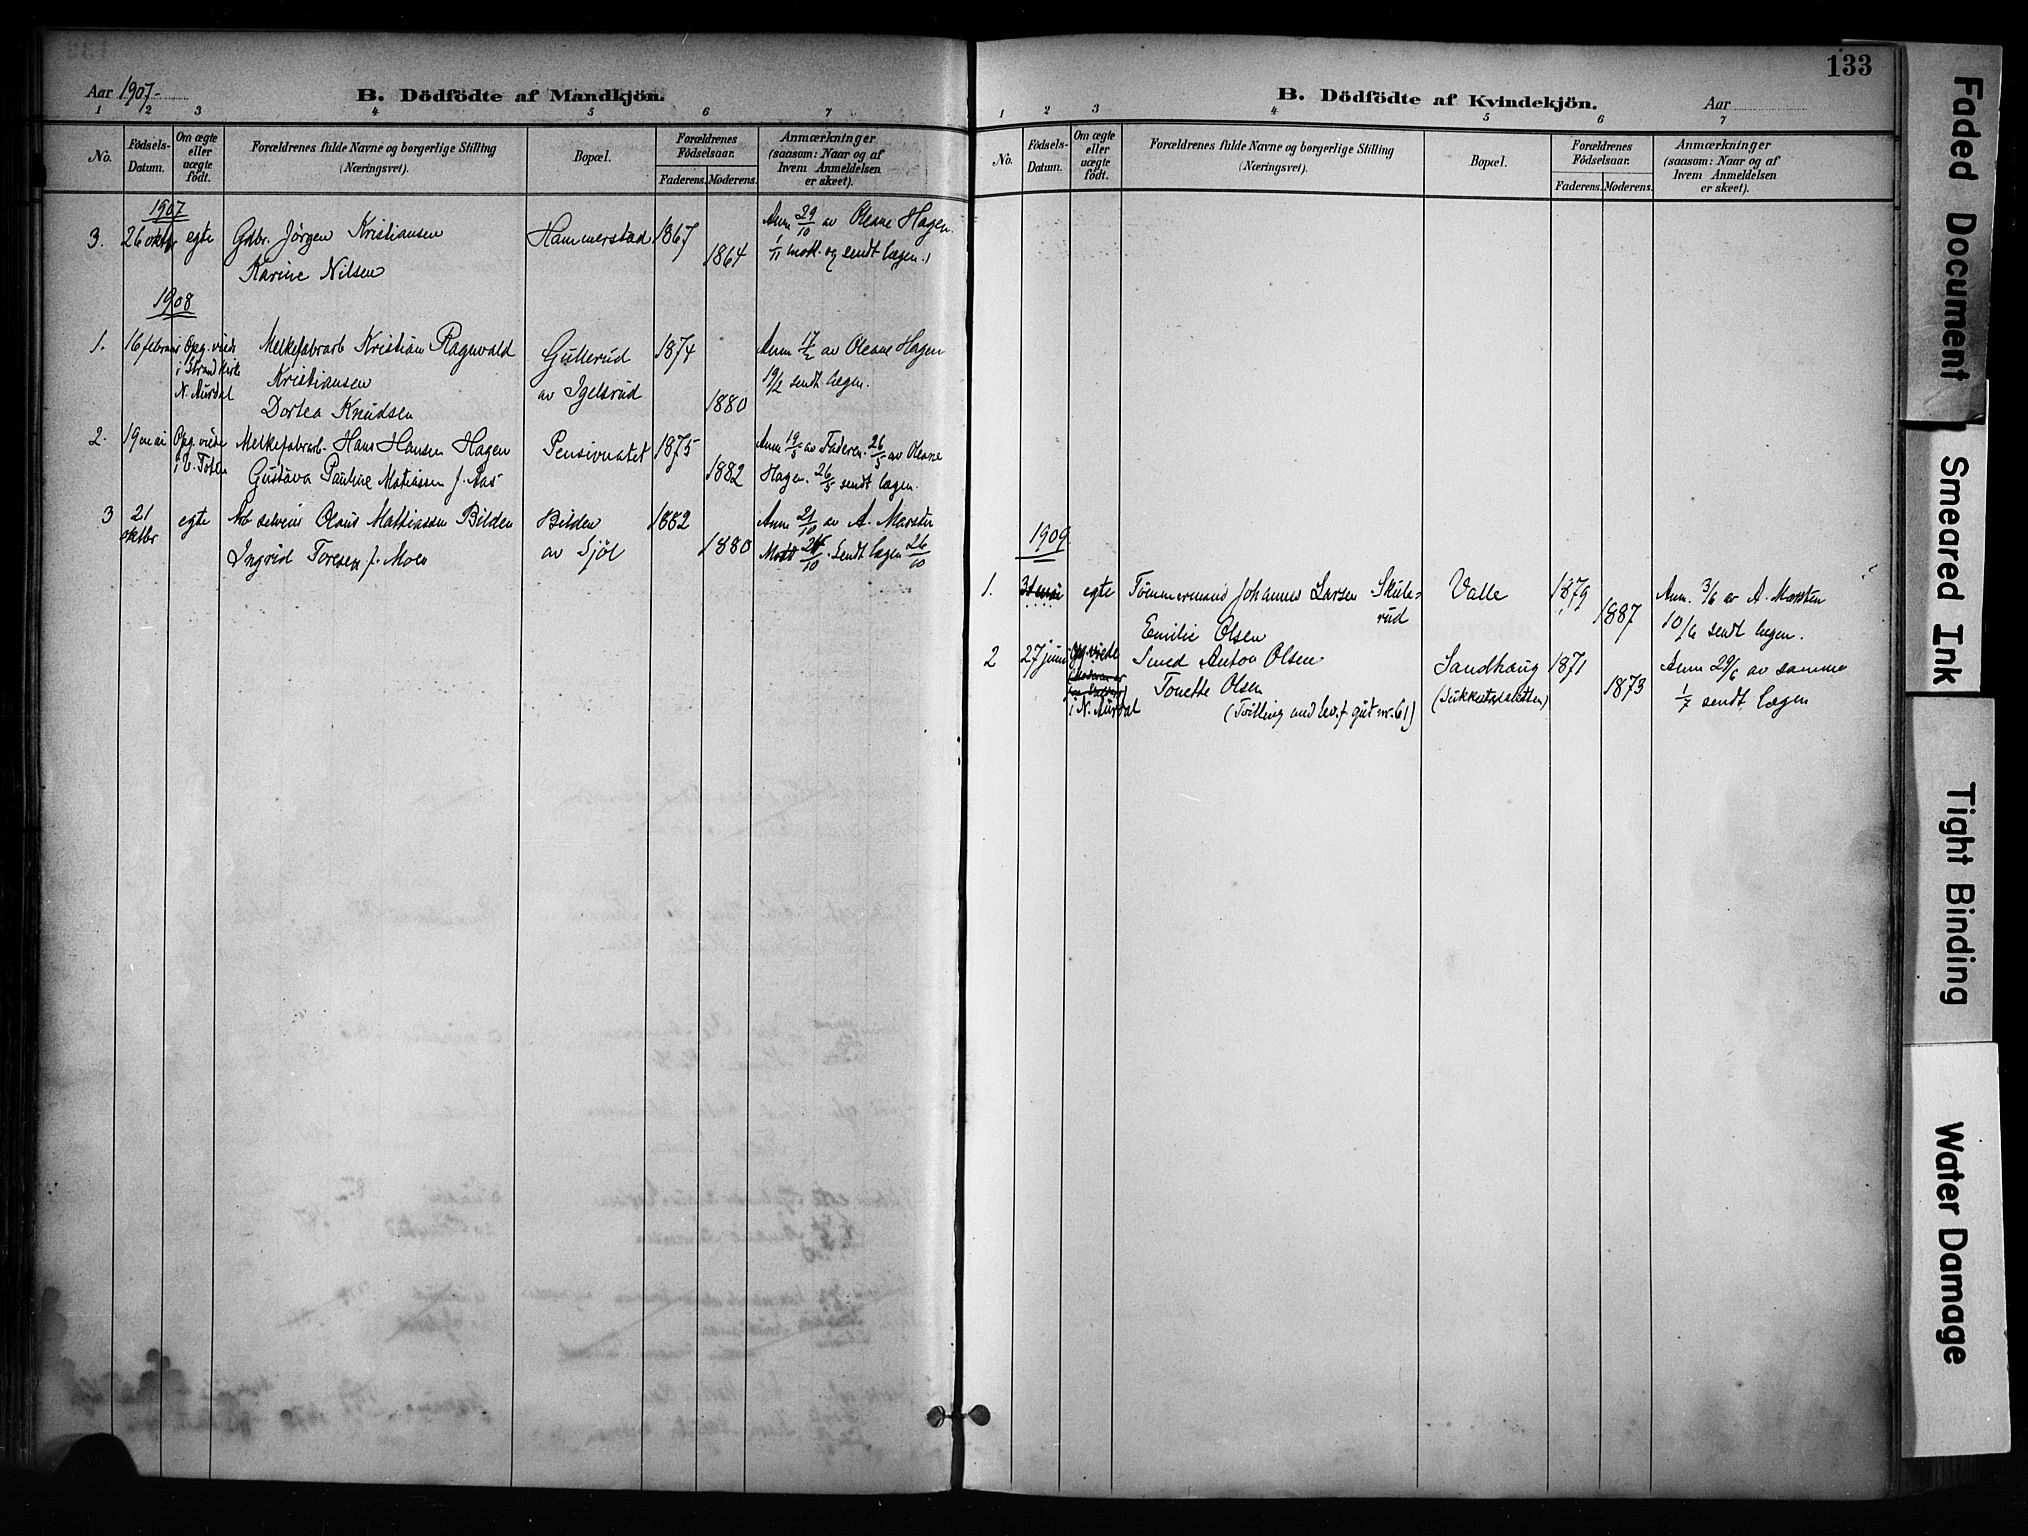 Aar 1907-
B. Dödfödte af Mandkjön.
1 2 3 4 5 6 7
No.
Födsels-Datum.
Om ægte eller uægte födt.
Forældrenes fulde Navne og borgerlige Stilling
(Næringsvei).
Bopæl.
Forældrenes Födselsaar.
Faderens. Moderens.
Anmærkninger
(saasom: Naar og af
hvem Anmeldelsen
er skeet).
1907
3. 26 oktbr egte Gdbr. Jørgen Kristiansen Hammerstad 1867 Anm 29/10 av Oleane Hagen.
Karine Nilsen 1864 1/11 mott. og sendt lægen.
1908
1. 16 februar Opg. viede Melkefabrarb Kristian Ragnvald Gullerud 1874 Anm 17/2 av Oleane Hagen
i Strand kirke Kristiansen av Igelsrud 19/2 sendt lægen.
N. Aurdal Dortea Knudsen 1880
2. 19 mai Opg. viede Melkefabrarb. Hans Hansen Hagen Pensionatet 1875 Anm 19/5 av Faderen. 26/5 av Oleane
i V. Toten Gustava Pauline Matiassen f. Aas 1882 Hagen. 26/5 sendt lægen.
3 21 egte Arb selveier Olaus Mathiassen Bilden Bilden 1882 Anm 21/10 av A. Marsten
oktbr Ingrid Toresen f. Moen av Sjöl 1880 Mott 24/10. Sendt lægen 26/10
133
B. Dödfödte af Kvindekjön.
Aar
1 2 3 4 5 6 7
No.
Födsels-Datum.
Om ægte eller uægte födt.
Forældrenes fulde Navne og borgerlige Stilling
(Næringsvei).
Bopæl.
Forældrenes Födselsaar.
Faderens. Moderens.
Anmærkninger
(saasom: Naar og af
hvem Anmeldelsen
er skeet).
1909
1. 31 mai egte Tømmermand Johannes Larsen Skule- Valle 1879 Anm. 3/6 av A. Marsten
rud
Emilie Olsen 1887 10/6 sendt lægen.
2 27 juni Opg. viede Smed Anton Olsen Sandhaug 1871 Anm 29/6 av samme
Tonette Olsen 1873 1/7 sendt lægen
i N. Aurdal (Tvilling med lev. f. gut nr. 61)
Faded Document
Smeared Ink
Tight Binding
Water Damage